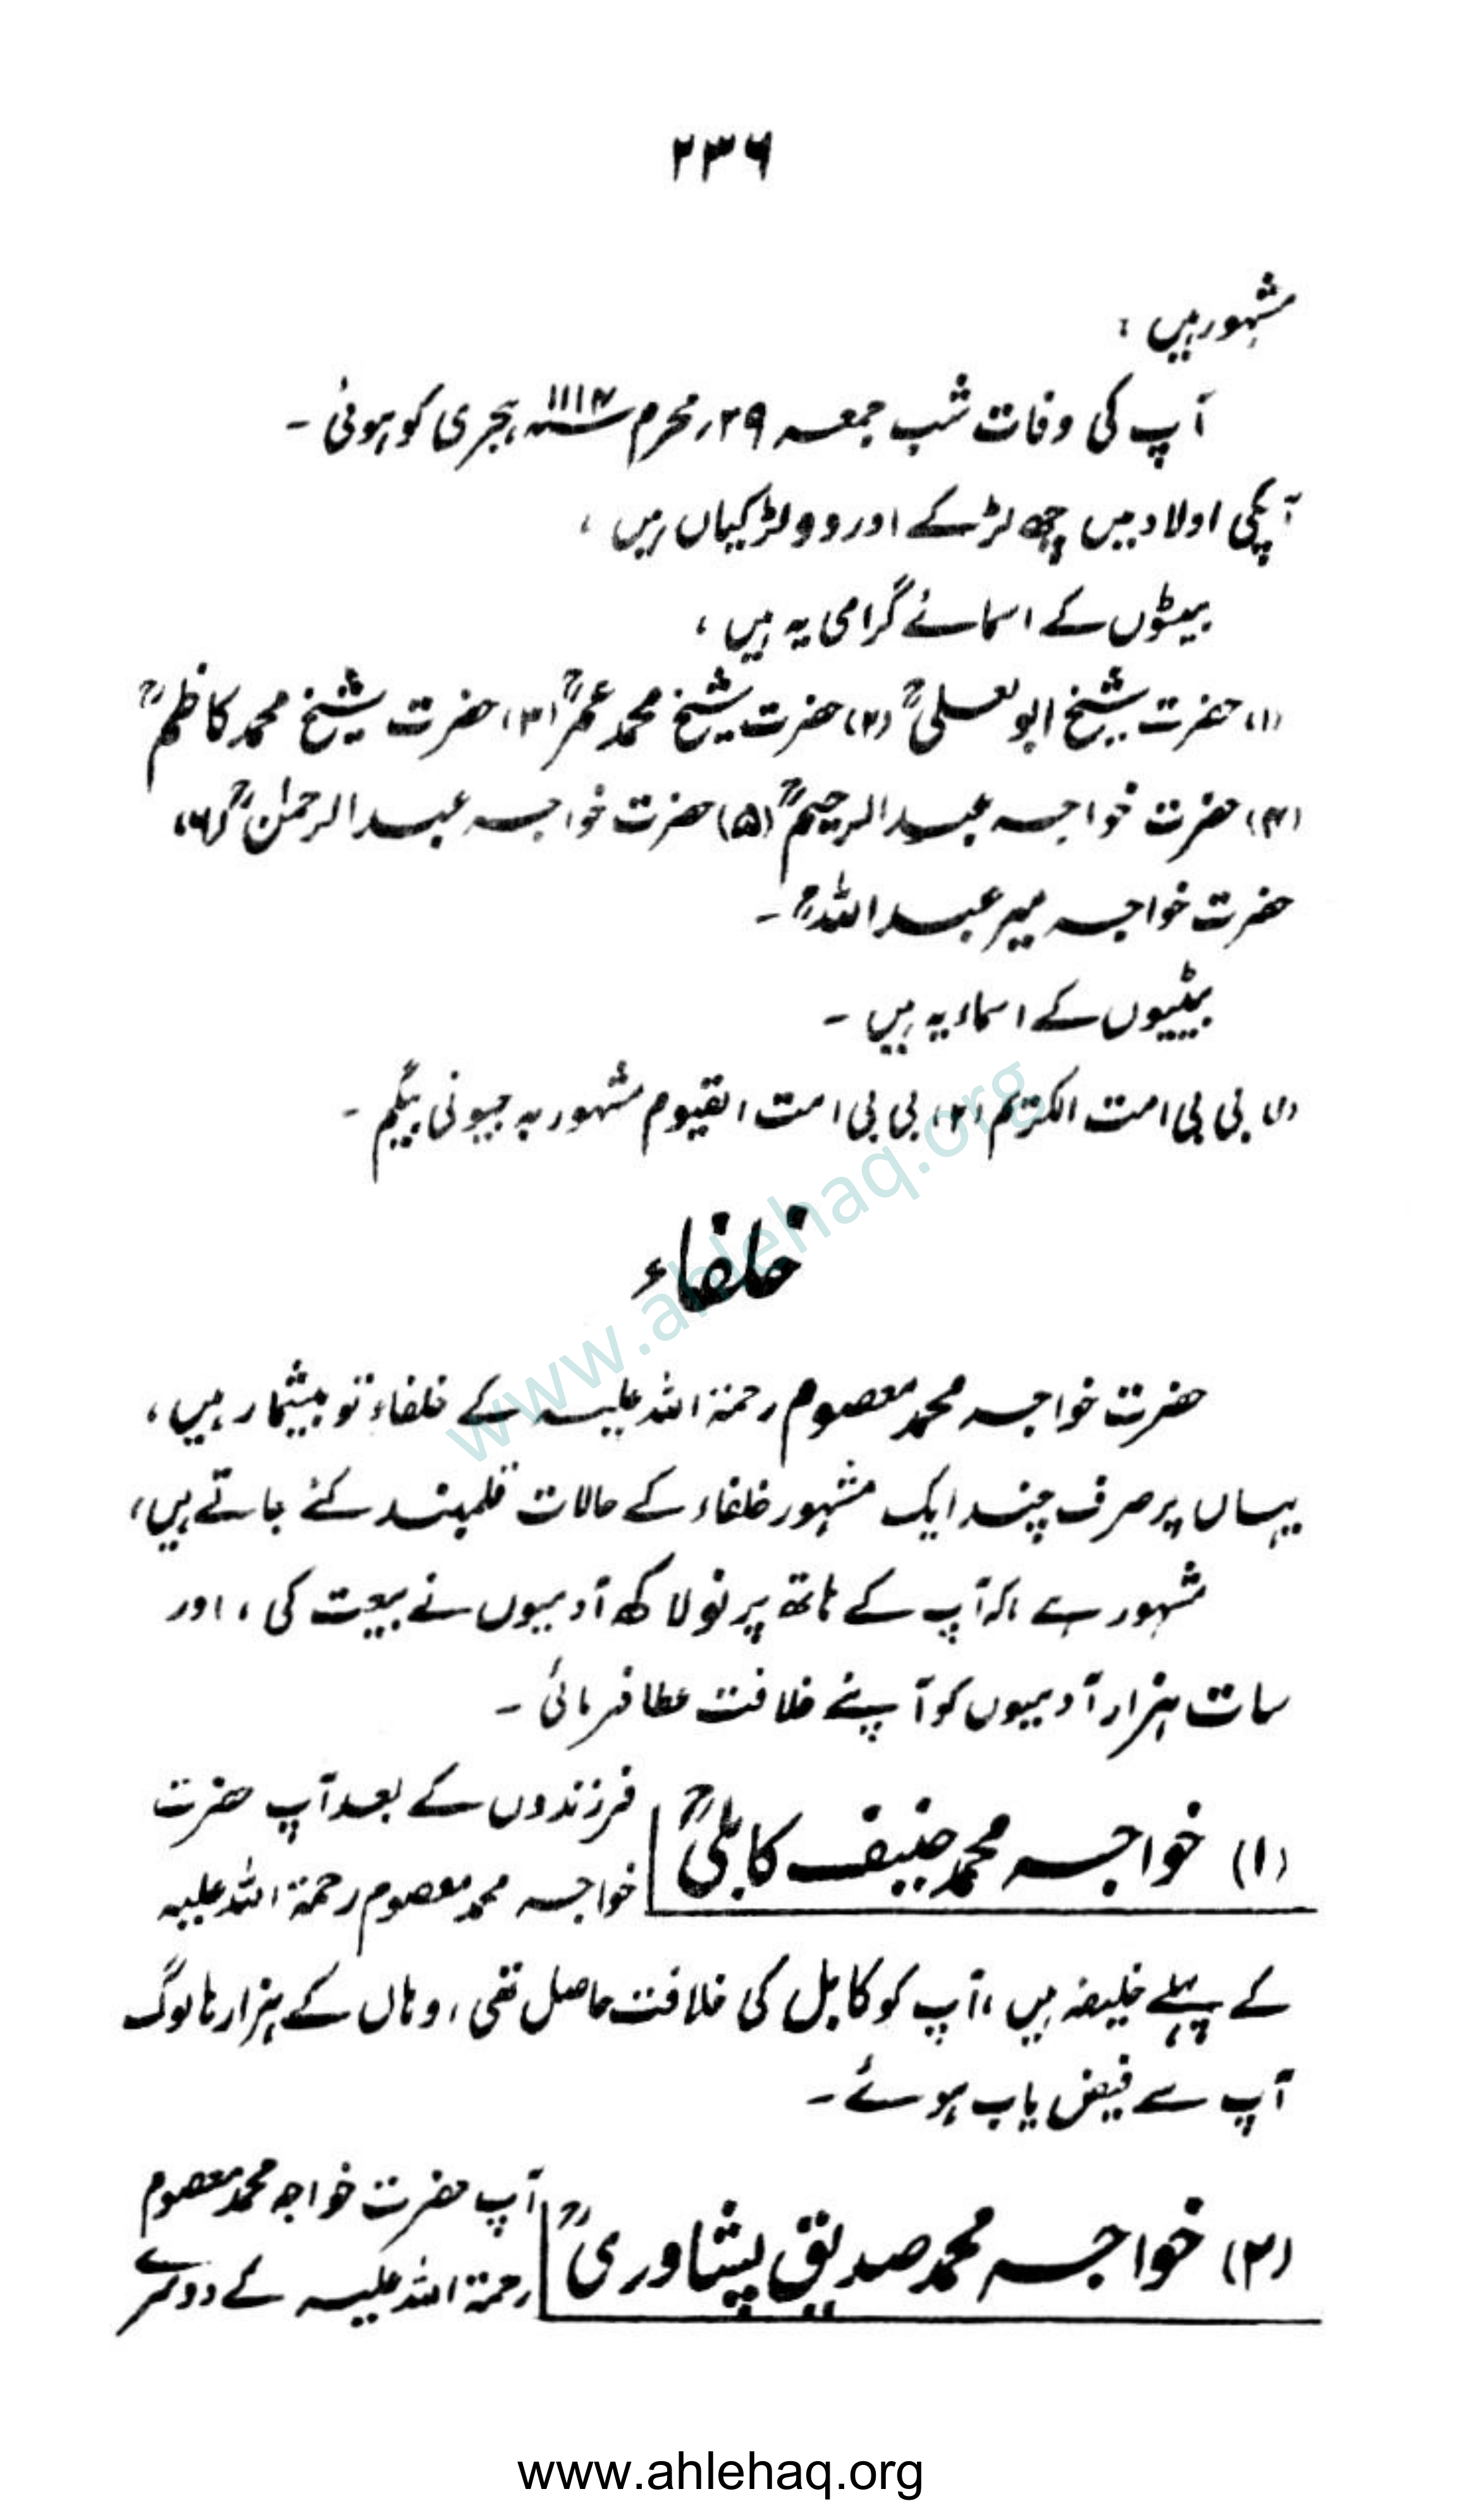 ۲۳۶
مشہور ہیں :
آپ کی وفات شب جمعہ ۲۹ر محرم ۱۱۱۴ سنہ ہجری کو ہوئی ۔
آپکی اولاد میں چھ لڑکے اور دو لڑکیاں ہیں ،
بیٹوں کے اسمائے گرامی یہ ہیں ،
(۱) حضرت شیخ ابو لعلیٰؒ (۲) حضرت شیخ محمد عمرؒ (۳) حضرت شیخ محمد کاظمؒ
(۴) حضرت خواجہ عبدالرحیمؒ (۵) حضرت خواجہ عبدالرحمٰنؒ (۶)
حضرت خواجہ میر عبداللہؒ ۔
بیٹیوں کے اسماء یہ ہیں ۔
(۱) بی بی امت الکریم (۲) بی بی امت القیوم مشہور بہ جیونی بیگم ۔
خلفاء
حضرت خواجہ محمد معصوم رحمۃ اللہ علیہ کے خلفاء تو بیشمار ہیں ،
یہاں پر صرف چند ایک مشہور خلفاء کے حالات قلمبند کئے جاتے ہیں ،
مشہور ہے ، کہ آپ کے ہاتھ پر نو لاکھ آدمیوں نے بیعت کی ، اور
سات ہزار آدمیوں کو آپنے خلافت عطا فرمائی ۔
(۱) خواجہ محمد حنیف کابلیؒ
فرزندوں کے بعد آپ حضرت
خواجہ محمد معصوم رحمۃ اللہ علیہ
کے پہلے خلیفہ ہیں ، آپ کو کابل کی خلافت حاصل تھی ، وہاں کے ہزارہا لوگ
آپ سے فیض یاب ہوئے ۔
(۲) خواجہ محمد صدیق پشاوریؒ
آپ حضرت خواجہ محمد معصوم
رحمۃ اللہ علیہ کے دوسرے
www.ahlehaq.org
www.ahlehaq.org